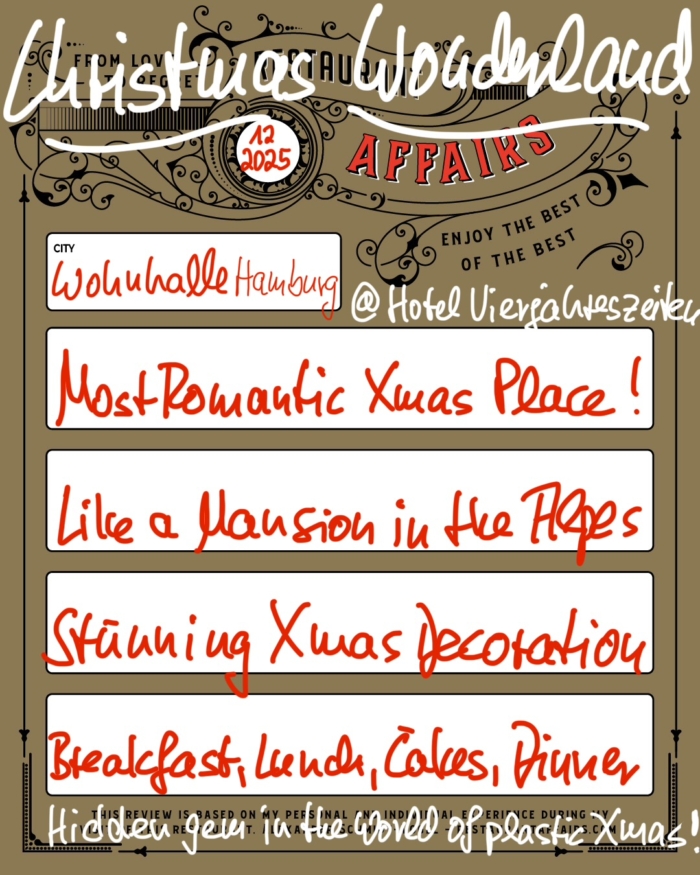 Christmas Wonderland
FROM LOVE
RESTAURANT
12
2025
AFFAIRS
ENJOY THE BEST
OF THE BEST
CITY
Wohnhalle Hamburg
@ Hotel Vierjahreszeiten
Most Romantic Xmas Place!
Like a Mansion in the Alpes
Stunning Xmas Decoration
Breakfast, Lunch, Cakes, Dinner
THIS REVIEW IS BASED ON MY PERSONAL AND INDIVIDUAL EXPERIENCE DURING MY
Hidden gem in the World of plastic Xmas!